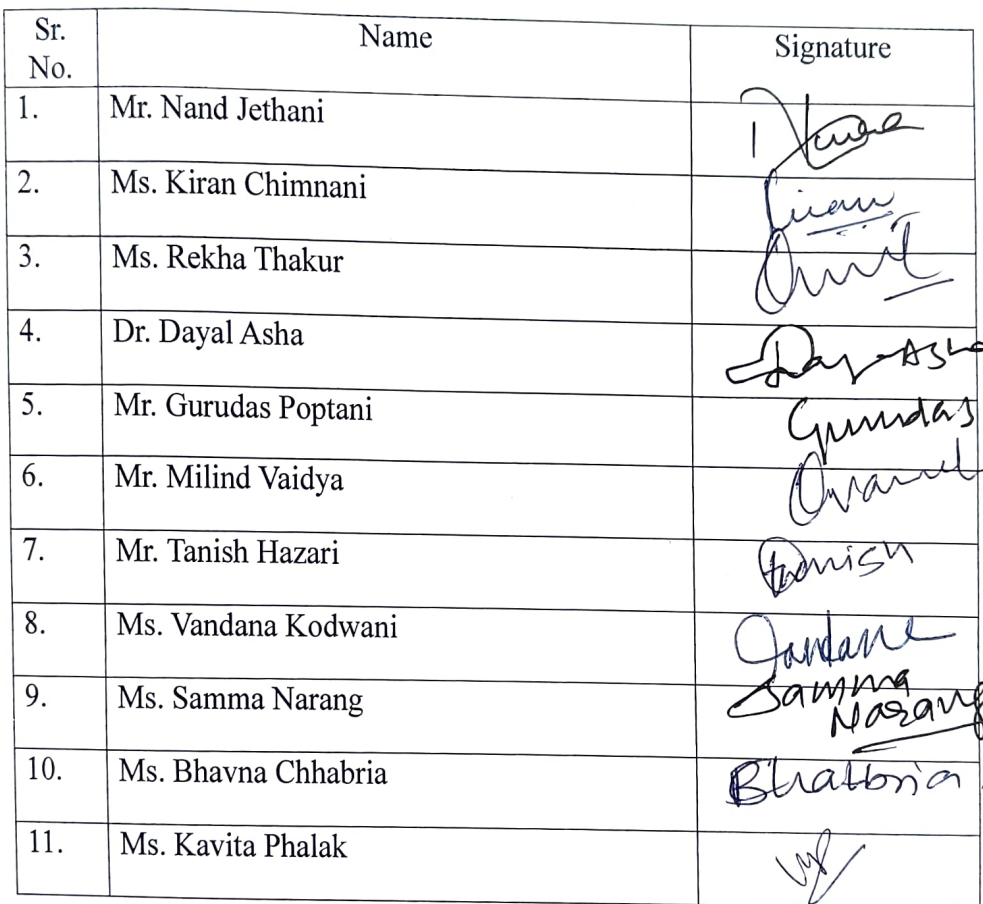 Sr. No. Name Signature
1. Mr. Nand Jethani
2. Ms. Kiran Chimnani
3. Ms. Rekha Thakur
4. Dr. Dayal Asha
5. Mr. Gurudas Poptani Gurudas
6. Mr. Milind Vaidya
7. Mr. Tanish Hazari Tanish
8. Ms. Vandana Kodwani
9. Ms. Samma Narang Samma Narang
10. Ms. Bhavna Chhabria
11. Ms. Kavita Phalak